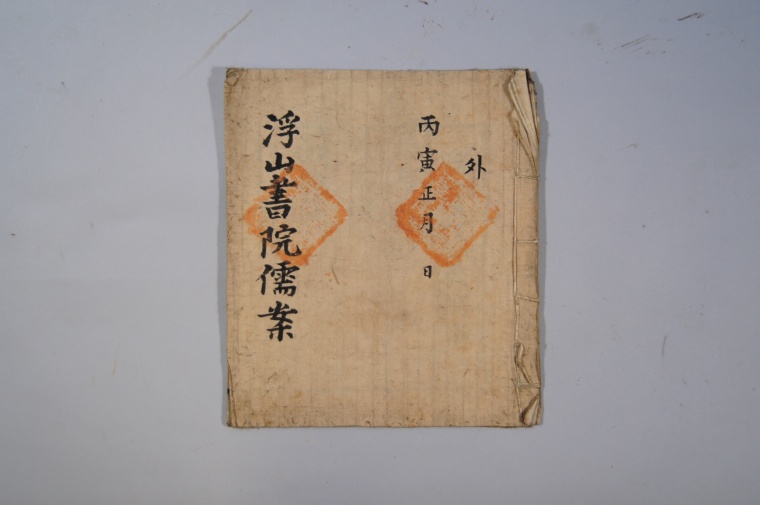 外
丙寅正月 日
浮山書院儒案